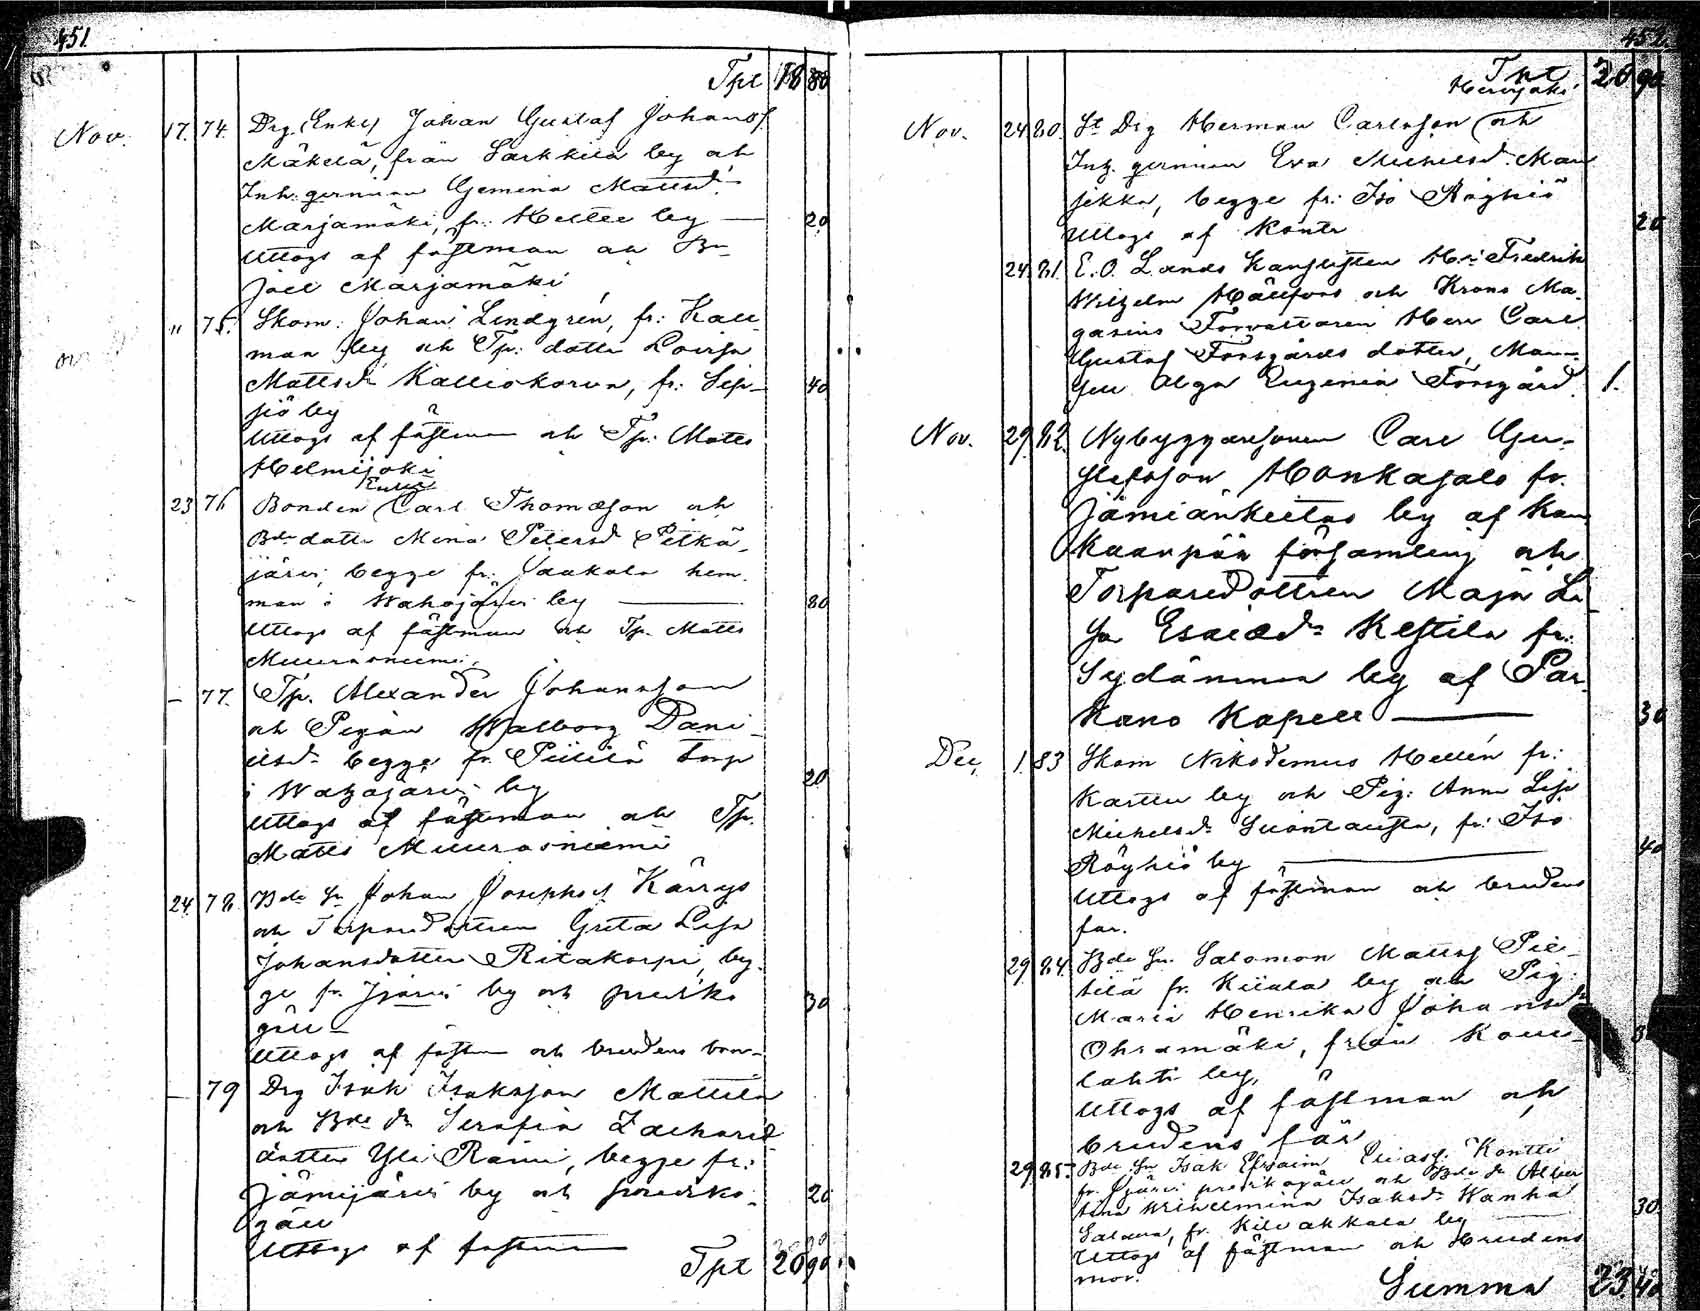 451.
Tpt 18 80
Nov. 17. 74. Drg. Enkl. Johan Gustaf Johansf.
Mäkelä, från Sarkkila by och
Inh. Gemina Mattsd.
Marjamäki, fr. by — 20
Uttogs af fästman och Bn
Joel Marjamäki
" 75. Skom. Johan Lindgrén, fr. Kall
man by och Tp. dottr Lovisa
Mattsdr Kalliokorva, fr. Sip-
piö by 40
Uttogs af fästman och Tp. Matts
Helmijoki
23 76 Bonden Enkl. Carl Thomasson och
Bde dottr Mina Petersd Pitkä-
järvi, begge fr. Jaakola hem.
man i Wahojärvi by — 80
Uttogs af fästman och Tp. Matts
Muurasniemi.
— 77. Tp. Alexander Johansson
och Pigan Walborg Dani-
elsd. begge fr. Torp
i Wahojärvi by 20
Uttogs af fästman och Tp.
Matts Muurasniemi
24. 78. Bde Sn Johan Josephsf Kärrys
och Torparedottren Greta Lisa
Johansdotter Ritakorpi, beg-
ge fr. Jjärvi by och prediko
gäll 30
Uttogs af fästm och brudens bror
— 79 Drg Isak Isaksson Mattila
och Bde dr Serafia Zacharid
dotter Yli Rämi, begge fr:
Jämijärvi by och prediko- 20
gäll
Uttogs af fästman
Tpt 20 90

452.
Tpt 20 90
Nov. 24 80. St Drg Herman Carlsson och
Inh. Eva Michelsd. Man
sikka, begge fr. Iso Röyhiö 20
Uttogs af
24 81. E. O. Lands Kanslisten Hr Fredrik
Wilhelm Hällfors och Krono Ma-
gasins Förvaltaren Herr Carl
Gustaf Forsgårds dotter, Mam-
sell Olga Eugenia Forsgård. 1.
Nov. 29. 82. Nybyggaresonen Carl Gu-
stafsson Honkasalo fr.
Jämiänkeitas by af Kan
kaanpää församling och
Torparedottren Maja Li
sa Esaiæd: Kestilä fr:
Sydänmaa by af Par-
kano Kapell — 30
Dec. 1. 83 Skom Nikodemus Hellén fr:
Karttu by och Pig: Anna Lisa
Michelsd. Suontausta, fr. Iso
Röyhiö by — 40
Uttogs af fästman och brudens
far.
29. 84. Bde Sn. Salomon Mattsf Pie-
tilä fr. Kiiala by och Pig:
Maria Henrika Johansdr
Ohramäki, från Kovel-
lahti by,
Uttogs af fästman och
brudens far
29. 85. Bde Sn Isak Efraim Eliasf. Kontti
fr. Jjärvi predikogäll och Bde dr Alber
tina Wilhelmina Isaksdr Wanha
Salava, fr. Kilvakkala by — 30
Uttogs af fästman och Brudens
mor.
Summa 23 40